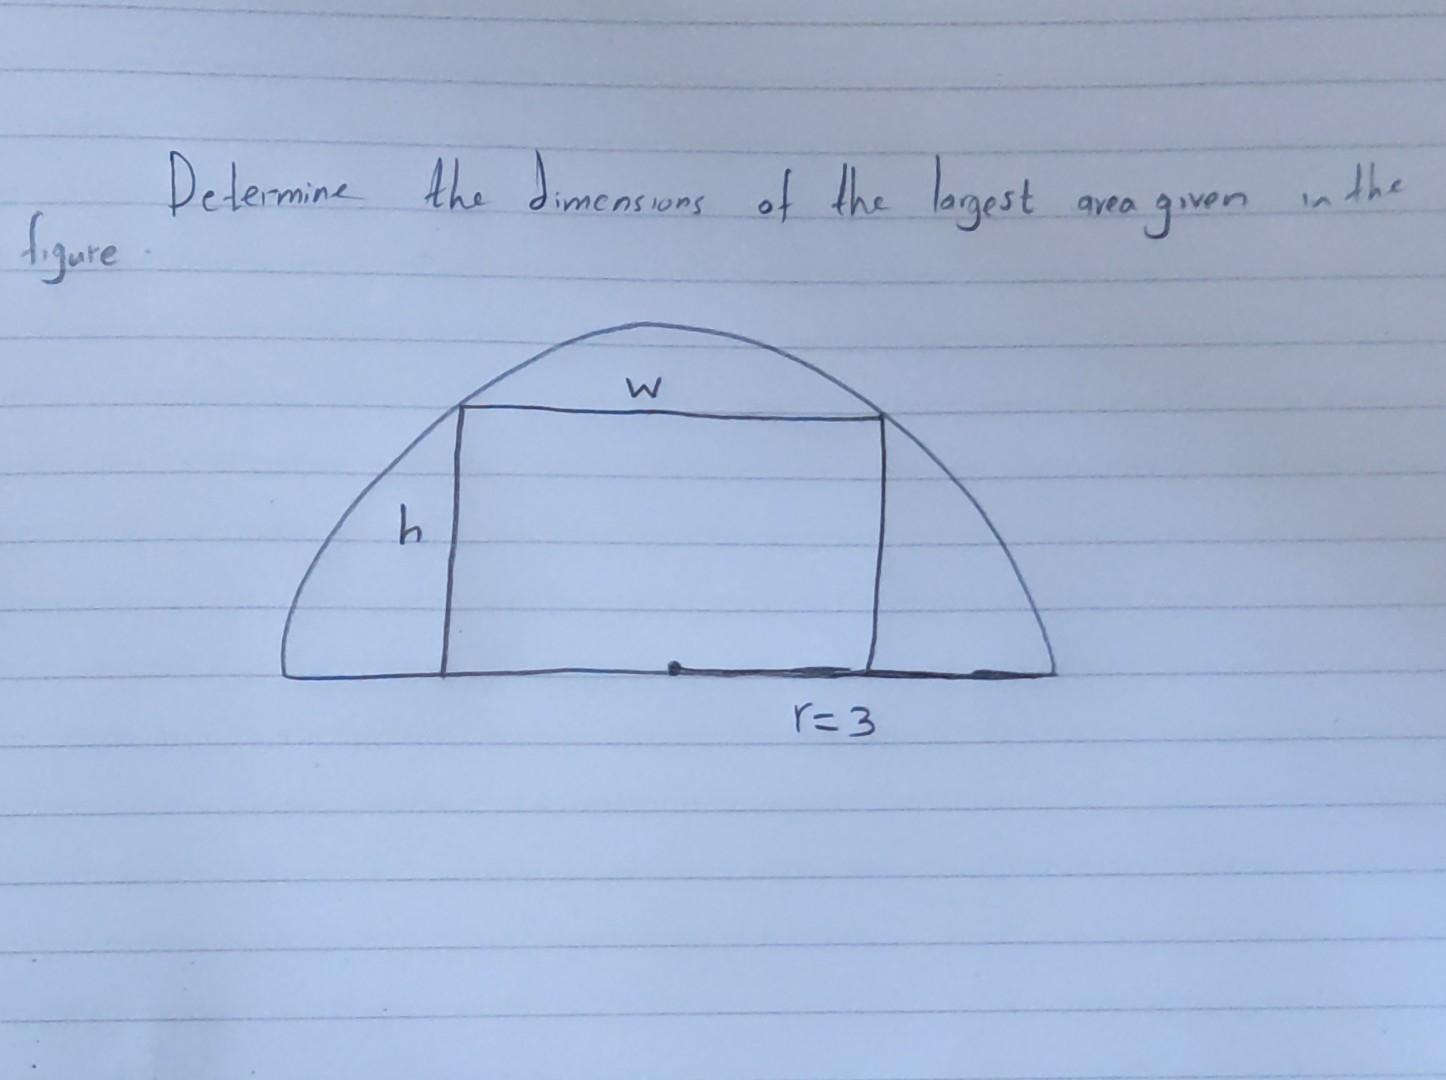 Determine the dimensions of the largest area given in the
figure.
w
h
r=3